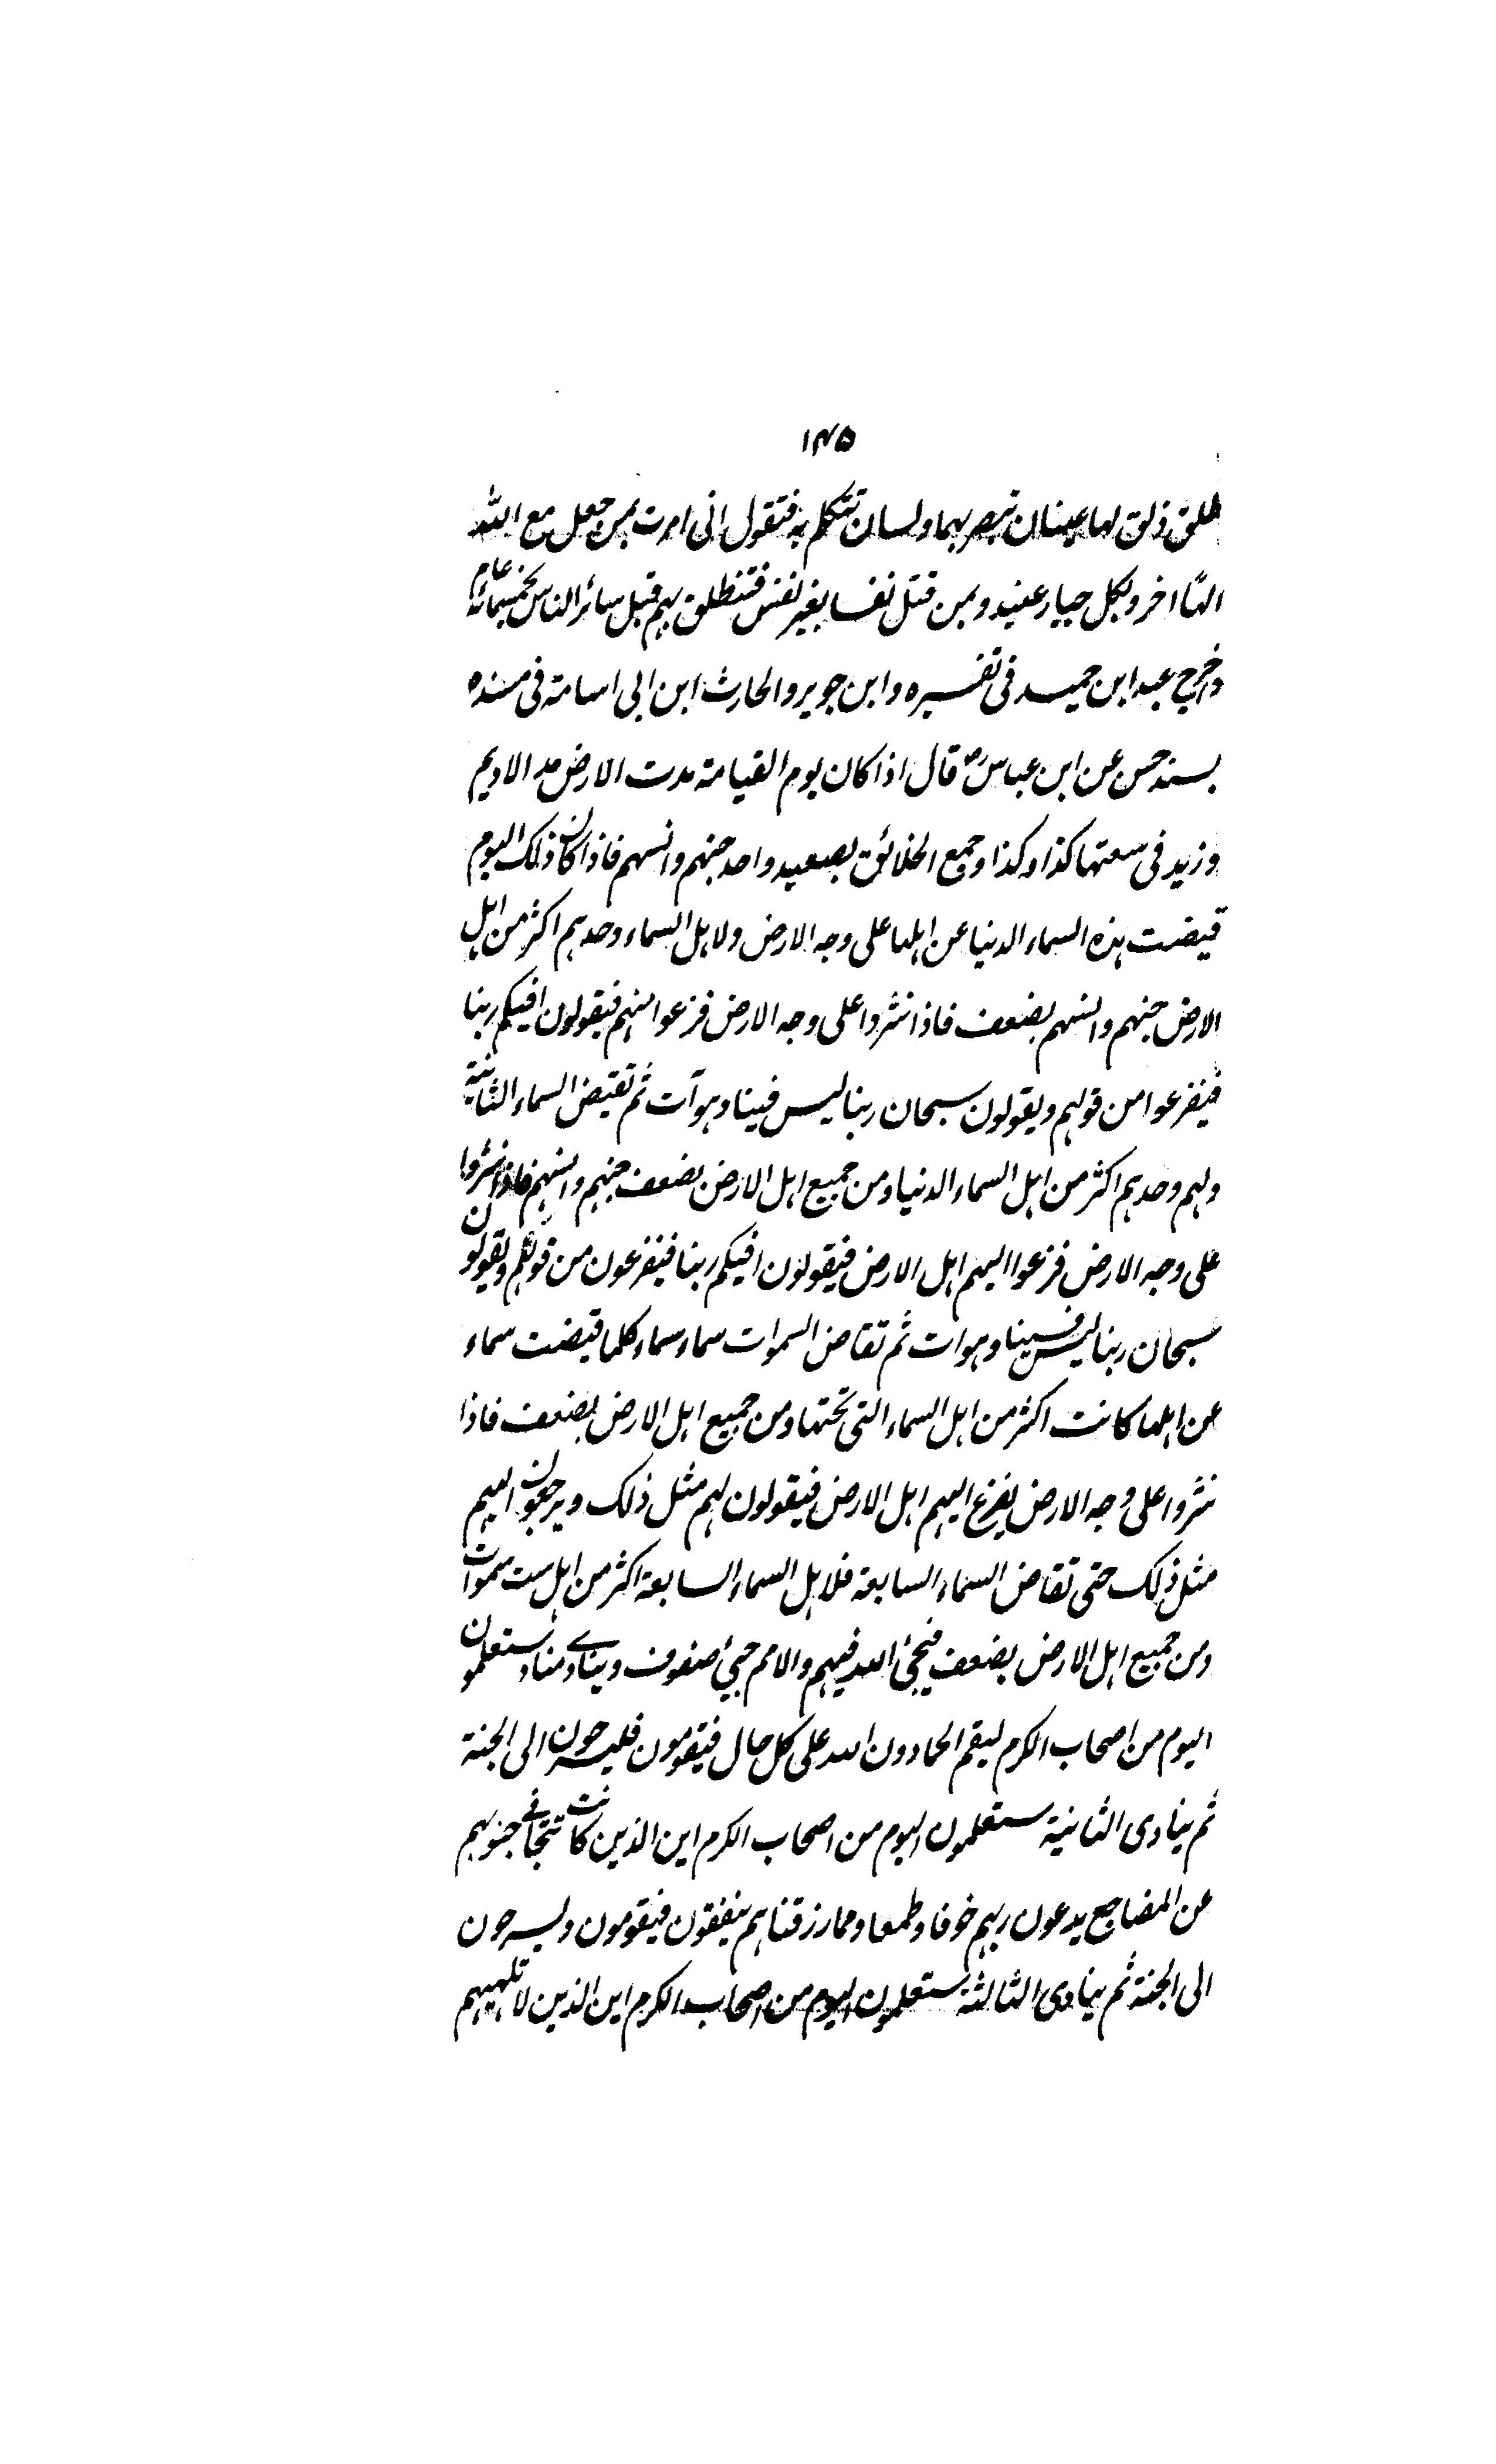 ۱۴۵
طلق ذلق لها عينان تبصر بهما ولسان تتكلم به فتقول انى امرت بمن جعل مع الله
الهًا اخر وبكل جبار عنيد وبمن قتل نفسا بغير نفس فتنطلق بهم قبل سائر الناس بخمسمائة عام
واخرج عبد ابن حميد فى تفسيره وابن جوير والحارث ابن ابى اسامة فى مسنده
بسند حسن عن ابن عباسؓ قال اذا كان يوم القيامة مدت الارض مد الاديم
وزيد فى سعتها كذا وكذا وجمع الخلائق بصعيد واحد جنهم وانسهم فاذا كان ذلك اليوم
قيضت هذه السماء الدنيا عن اهلها على وجه الارض ولاهل السماء وحدهم اكثر من اهل
الارض جنهم وانسهم بضعف فاذا نثروا على وجه الارض فزعوا منهم فيقولون افيكم ربنا
فيفزعوا من قولهم ويقولون سبحان ربنا ليس فينا وهو آت ثم تقيض السماء الثانية
ولهم وحدهم اكثر من اهل السماء الدنيا ومن جميع اهل الارض بضعف جنهم وانسهم فاذا نثروا
على وجه الارض فزعوا اليهم اهل الارض فيقولون افيكم ربنا فيفزعون من قولهم ويقولون
سبحان ربنا ليس فينا وهو ات ثم تقاض السموات سماء سماء كلما قيضت سماء
عن اهلها كانت اكثر من اهل السماء التى تحتها ومن جميع اهل الارض بضعف فاذا
نثروا على وجه الارض يفزع اليهم اهل الارض فيقولون لهم مثل ذلك ويرجعون اليهم
مثل ذلك حتى تقاض السماء السابعة فلاهل السماء السابعة اكثر من اهل ست سموات
ومن جميع اهل الارض بضعف فيجئ الله فيهم والامم جيئ صفوف وينادى مناد ستعلمون
اليوم من اصحاب الكرم ليقم الحمادون الله على كل حال فيقومون فليسرحون الى الجنة
ثم ينادى الثانية ستعلمون اليوم من اصحاب الكرم اين الذين كانت تتجافى جنوبهم
عن المضاجع يدعون ربهم خوفا وطمعا ومما رزقناهم ينفقون فيقومون وليسرحون
الى الجنة ثم ينادى الثالثة ستعلمون اليوم من اصحاب الكرم اين الذين لا تلهيهم